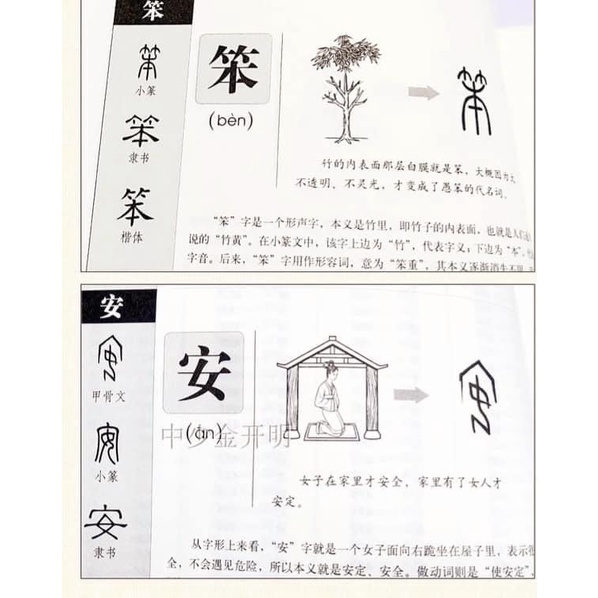 笨
小篆
隶书
楷体
笨
(bèn)
竹的内表面那层白膜就是笨，大概因为它
不透明、不灵光，才变成了愚笨的代名词。
“笨”字是一个形声字，本义是竹里，即竹子的内表面，也就是人们
说的“竹黄”。在小篆文中，该字上边为“竹”，代表字义；下边为“本”，
字音。后来，“笨”字用作形容词，意为“笨重”，其本义逐渐消失不用
安
甲骨文
小篆
隶书
安
(ān)
中少金开明
女子在家里才安全，家里有了女人才
安定。
从字形上来看，“安”字就是一个女子面向右跪坐在屋子里，表示很
全，不会遇见危险，所以本义就是安定、安全。做动词则是“使安定”，